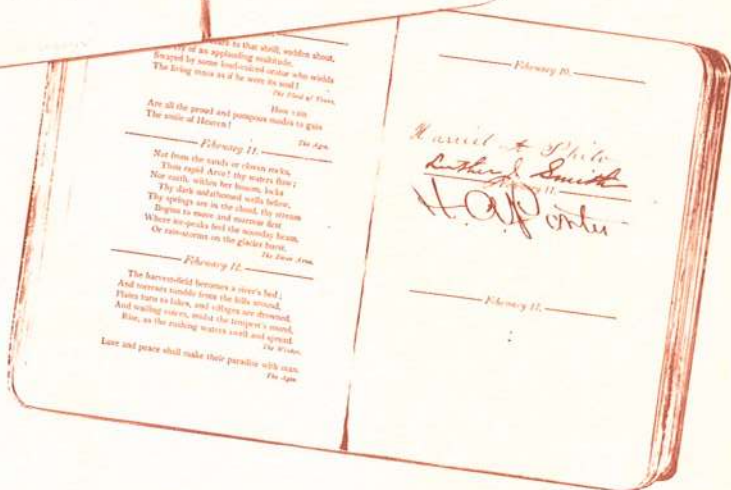 to that shrill, sudden shout,
of an applauding multitude,
Swayed by some loud-voiced orator who wields
The living mass as if he were its soul!
The Flood of Years.
How vain
Are all the proud and pompous modes to gain
The smile of Heaven!
The Ages.
February 11.
Not from the sands or cloven rocks,
Thou rapid Arve! thy waters flow;
Nor earth, within her bosom, locks
Thy dark unfathomed wells below.
Thy springs are in the cloud, thy stream
Begins to move and murmur first
Where ice-peaks feel the noonday beam,
Or rain-storms on the glacier burst.
The River Arve.
February 12.
The harvest-field becomes a river's bed;
And torrents tumble from the hills around,
Plains turn to lakes, and villages are drowned,
And wailing voices, midst the tempest's sound,
Rise, as the rushing waters swell and spread.
The
Love and peace shall make their paradise with man.
The Ages.
February 10.
Harriet A
Luther J. Smith
11.
H. A. Porter
February 12.